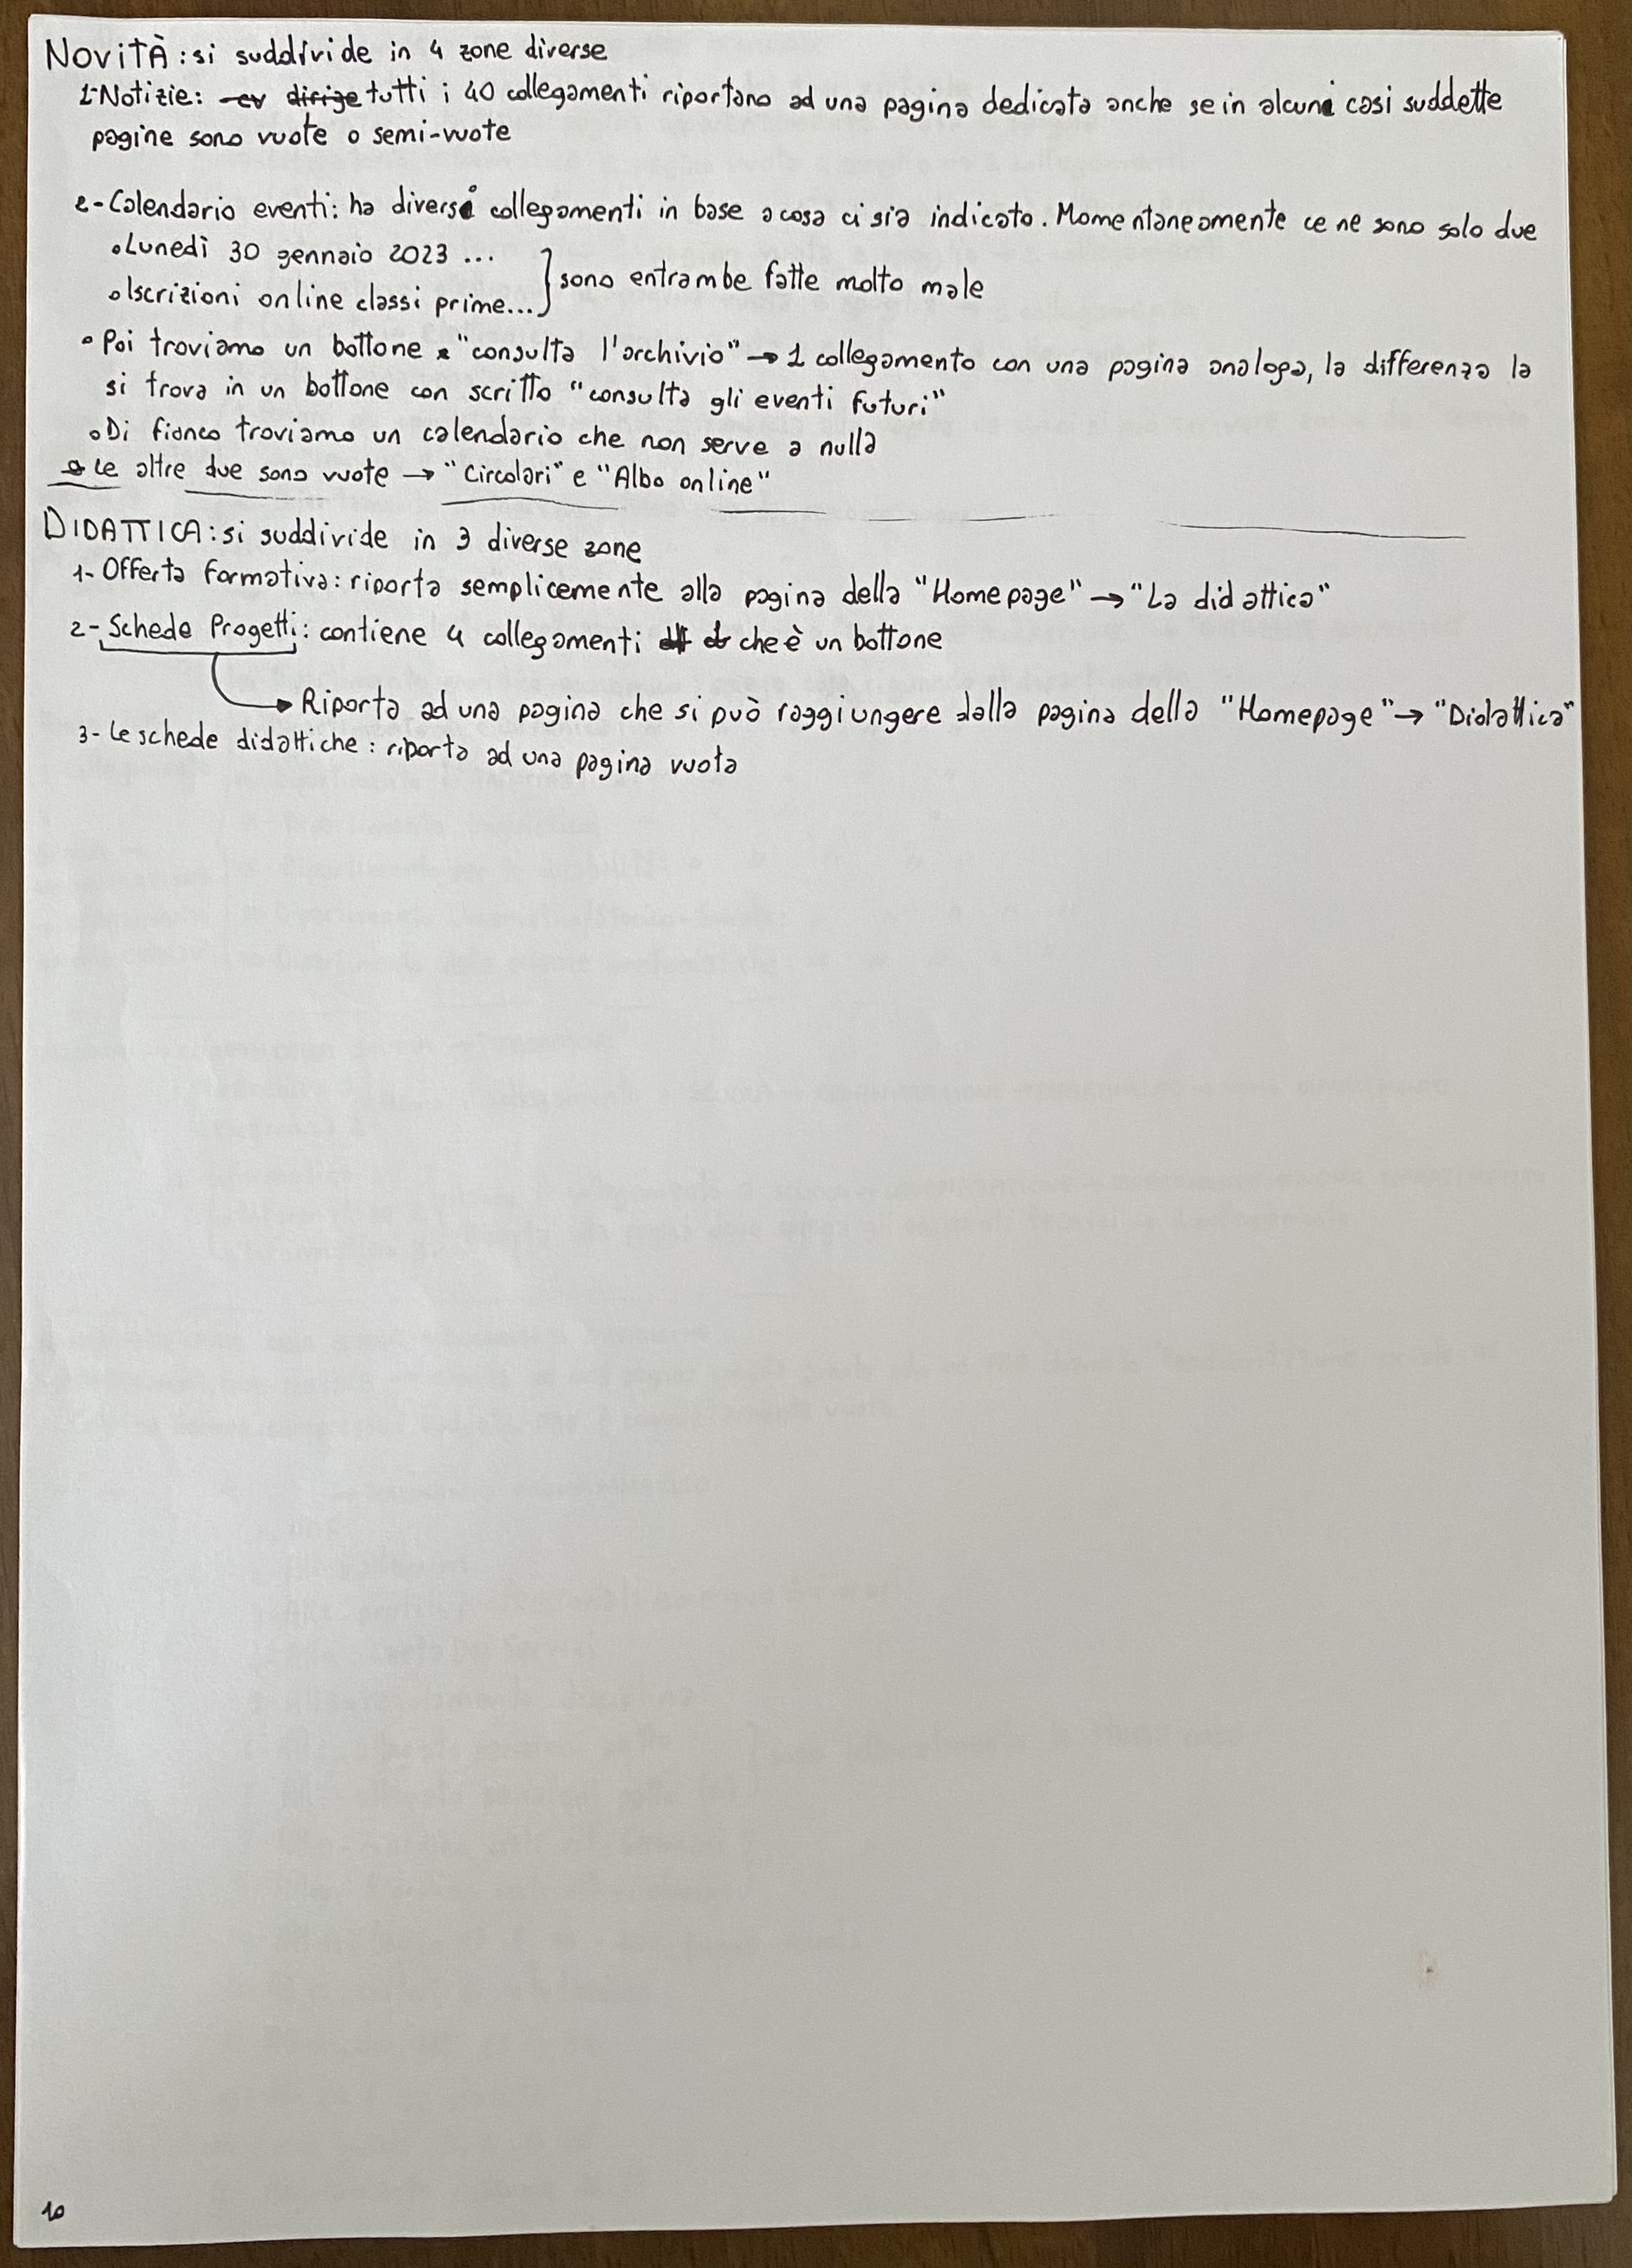 NOVITÀ: si suddivide in 4 zone diverse
1-Notizie: tutti i 40 collegamenti riportano ad una pagina dedicata anche se in alcuni casi suddette
pagine sono vuote o semi-vuote
2-Calendario eventi: ha diversi collegamenti in base a cosa ci sia indicato. Momentaneamente ce ne sono solo due
•Lunedì 30 gennaio 2023 ...
•Iscrizioni online classi prime...
sono entrambe fatte molto male
•Poi troviamo un bottone "consulta l'archivio" → 1 collegamento con una pagina analoga, la differenza la
si trova in un bottone con scritto "consulta gli eventi futuri"
•Di fianco troviamo un calendario che non serve a nulla
Le altre due sono vuote → "Circolari" e "Albo online"
DIDATTICA: si suddivide in 3 diverse zone
1-Offerta formativa: riporta semplicemente alla pagina della "Homepage" → "La didattica"
2-Schede Progetti: contiene 4 collegamenti che è un bottone
→ Riporta ad una pagina che si può raggiungere dalla pagina della "Homepage" → "Didattica"
3-Le schede didattiche: riporta ad una pagina vuota
10